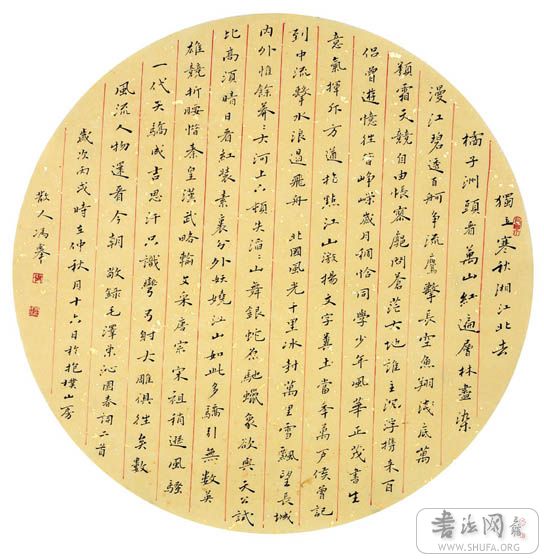 獨立寒秋湘江北去
橘子洲頭看萬山紅遍層林盡染
漫江碧透百舸爭流鷹擊長空魚翔淺底萬
類霜天競自由悵寥廓問蒼茫大地誰主沉浮携来百
侶曾遊憶往昔崢嶸歲月稠恰同學少年風華正茂書生
意氣揮斥方遒指點江山激揚文字糞土當年萬户侯曾記
到中流擊水浪遏飛舟 北國風光千里冰封萬里雪飄望長城
內外惟餘莽々大河上下頓失滔々山舞銀蛇原馳蠟象欲與天公試
比高須晴日看紅裝素裹分外妖嬈江山如此多驕引無數英
雄競折腰惜秦皇漢武略輸文采唐宗宋祖稍遜風騷
一代天驕成吉思汗只識彎弓射大雕俱往矣數
風流人物還看今朝敬錄毛澤東沁園春詞二首
歲次丙戌時在仲秋月十六日於抱樸山房
散人馮峯
书法网
WWW.SHUFA.ORG